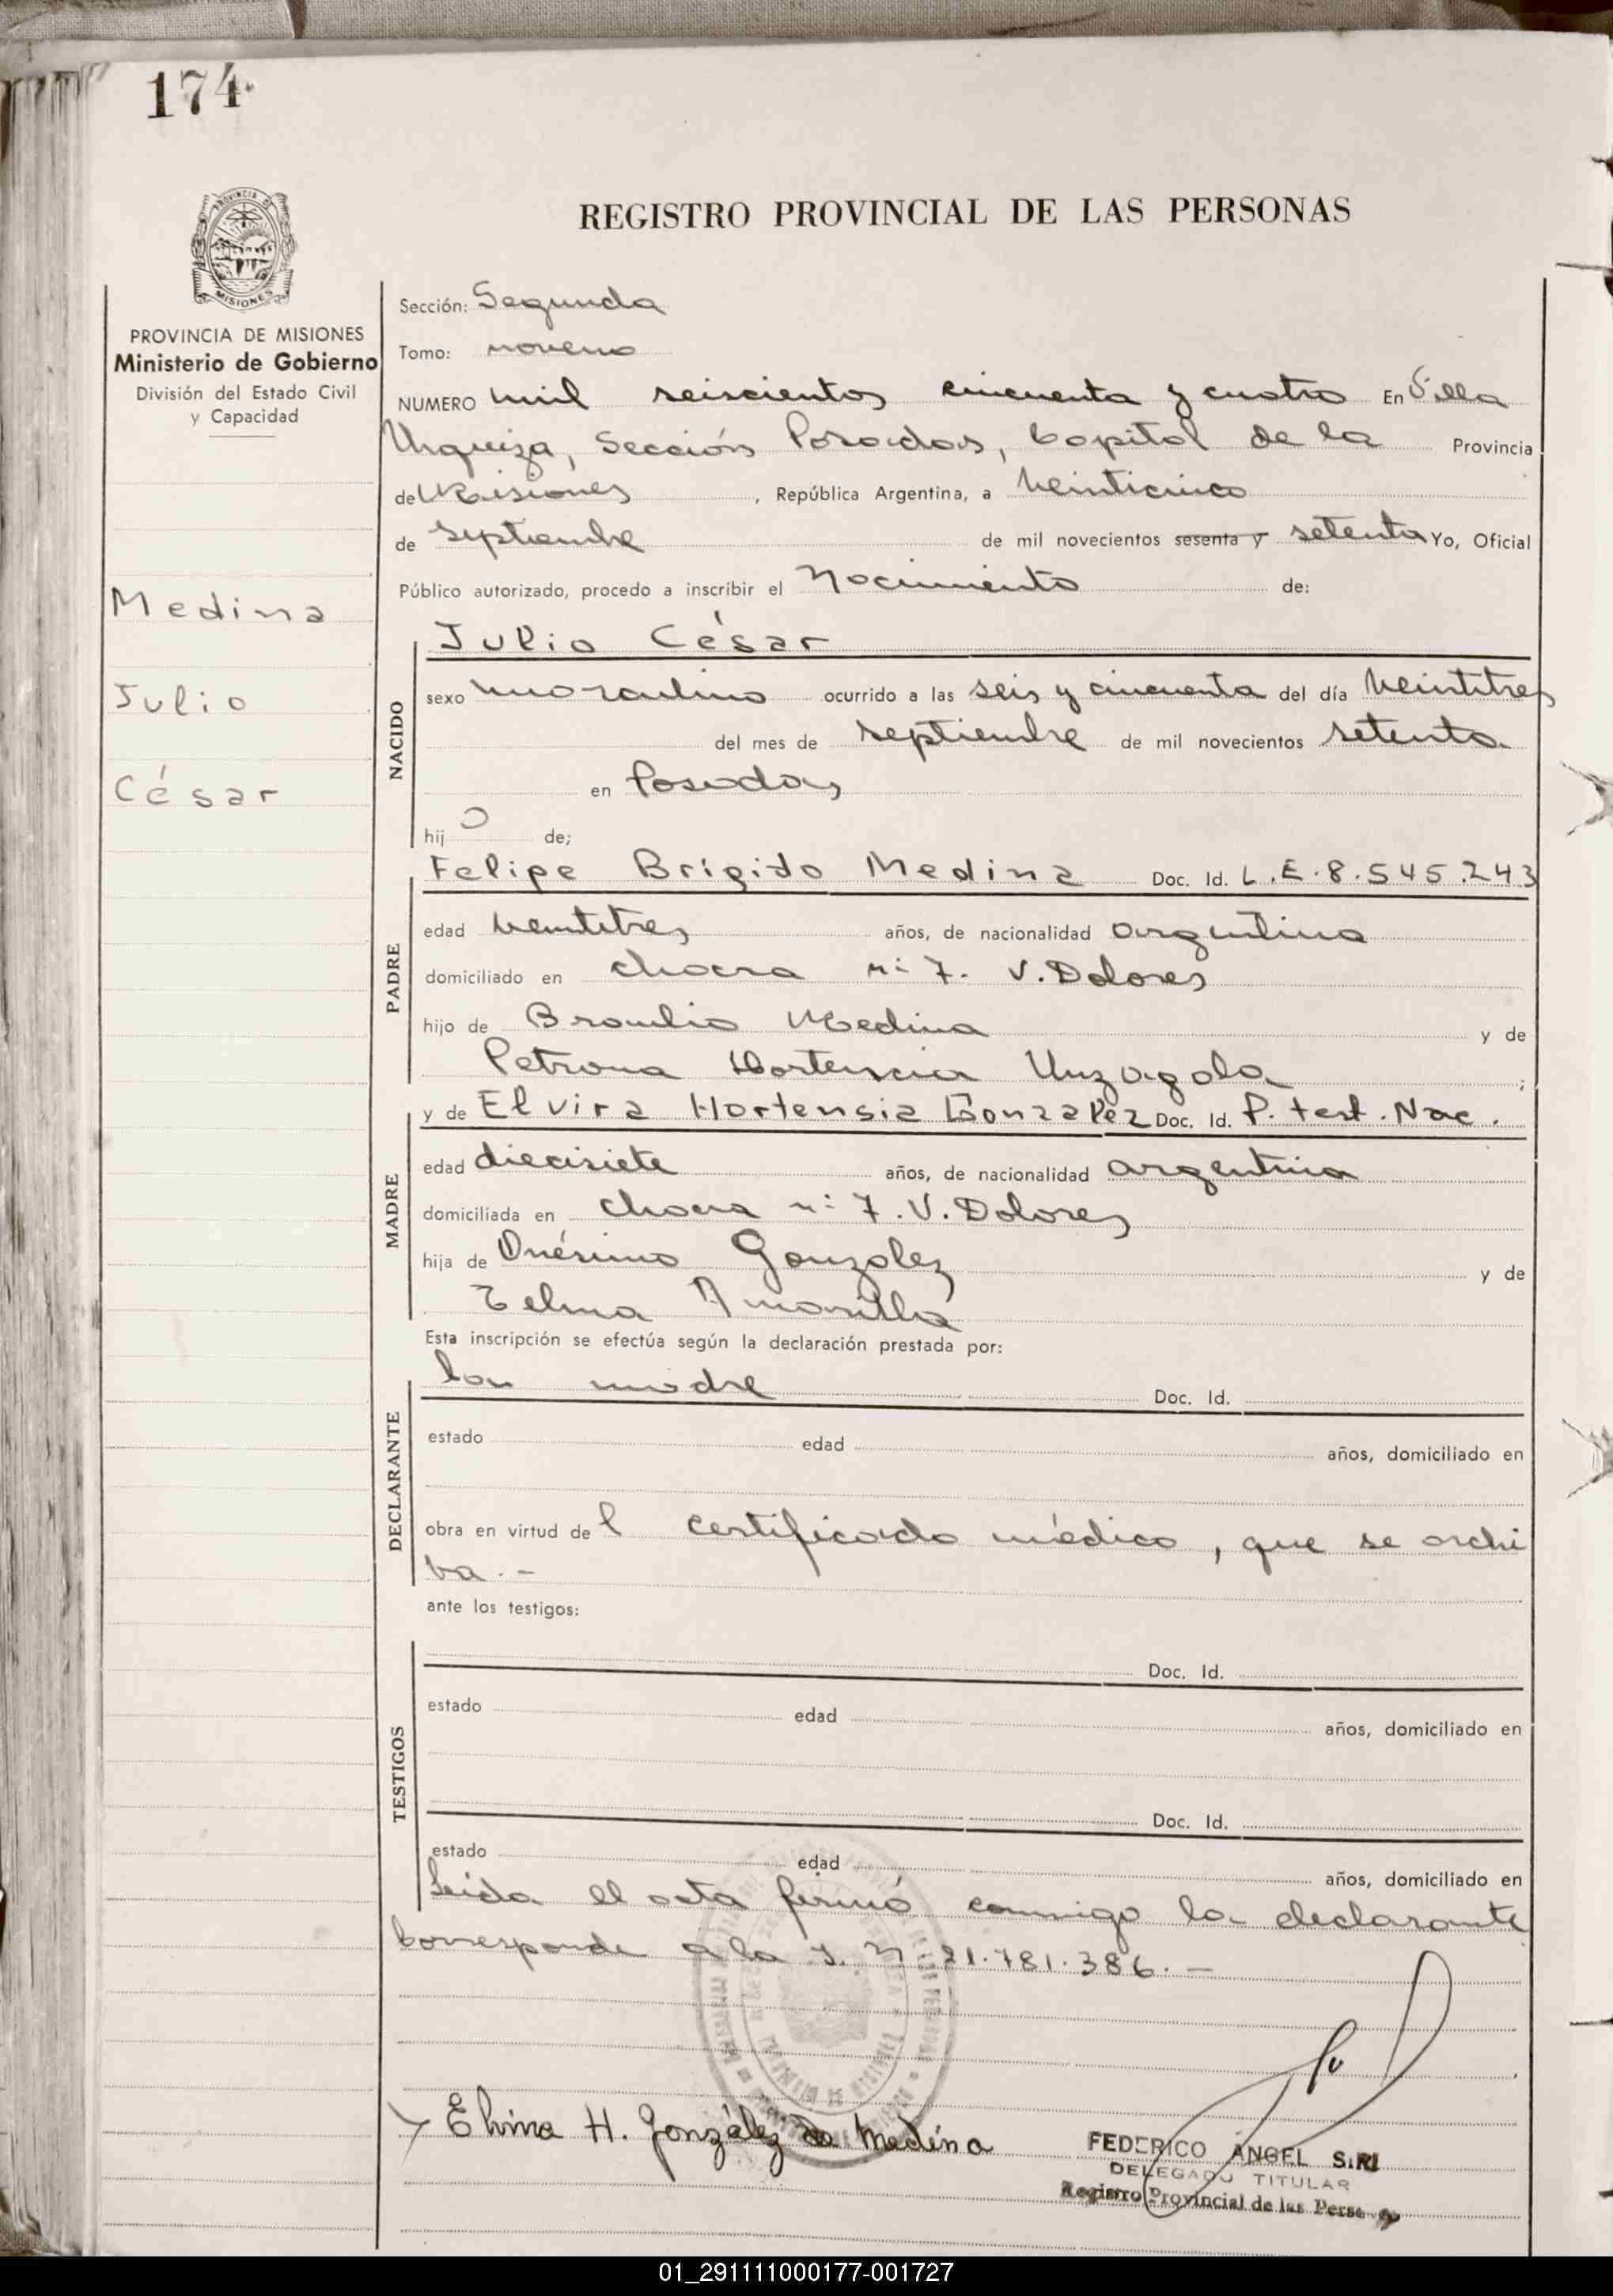 174
REGISTRO PROVINCIAL DE LAS PERSONAS
MISIONES
PROVINCIA DE MISIONES
Ministerio de Gobierno
División del Estado Civil
y Capacidad
Medina
Julio
César
Sección: Segunda
Tomo: noveno
NUMERO mil seiscientos cincuenta y cuatro En Villa
Urquiza, Sección Posadas, Capital de la Provincia
de Misiones, República Argentina, a veinticinco
de septiembre de mil novecientos sesenta y setenta Yo, Oficial
Público autorizado, procedo a inscribir el Nacimiento de:
NACIDO
Julio César
sexo masculino ocurrido a las seis y cincuenta del día veintitres
del mes de septiembre de mil novecientos setenta
en Posadas
hij o de;
PADRE
Felipe Brígido Medina Doc. Id. L.E.8.545.243
edad veintitres años, de nacionalidad argentina
domiciliado en chacra nº 7. V. Dolores
hijo de Braulio Medina y de
Petrona Hortencia Unzagala;
MADRE
y de Elvira Hortensia González Doc. Id. P. test. Nac.
edad diecisiete años, de nacionalidad argentina
domiciliada en chacra nº 7. V. Dolores
hija de Onésimo Gonzalez y de
Telma Amarilla
Esta inscripción se efectúa según la declaración prestada por:
DECLARANTE
la madre Doc. Id.
estado edad años, domiciliado en
obra en virtud de l certificado médico, que se archi
va.-
ante los testigos:
TESTIGOS
Doc. Id.
estado edad años, domiciliado en
Doc. Id.
estado edad años, domiciliado en
Leida el acta firmó conmigo la declarante
Corresponde a la I. Nº 21.781.386.-
Elvira H. González de Medina
FEDERICO ÁNGEL
DELEGADO TITULAR
Registro Provincial de las
01_291111000177-001727